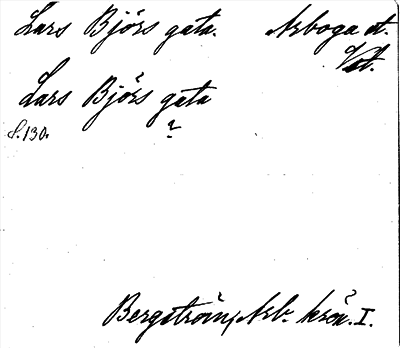 Lars Björs gata. Arboga st.
Vstl.
Lars Björs gata
s. 130. ?
Bergström, Arb. krön. I.